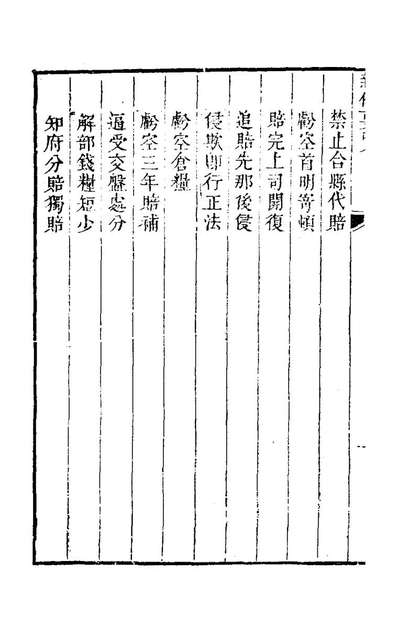 禁止合縣代賠
虧空首明寄頓
賠完上司開復
追賠先那後侵
侵欺卽行正法
虧空倉糧
虧空三年賠補
逼受交盤處分
解部錢糧短少
知府分賠獨賠